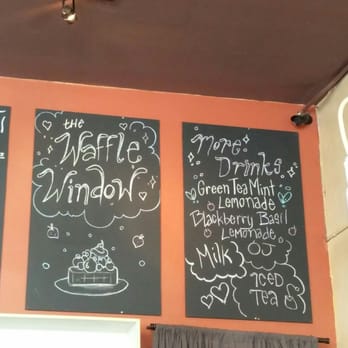 the
Waffle
Window
More
Drinks
Green Tea Mint
Lemonade
Blackberry Basil
Lemonade
Milk
Iced
Tea